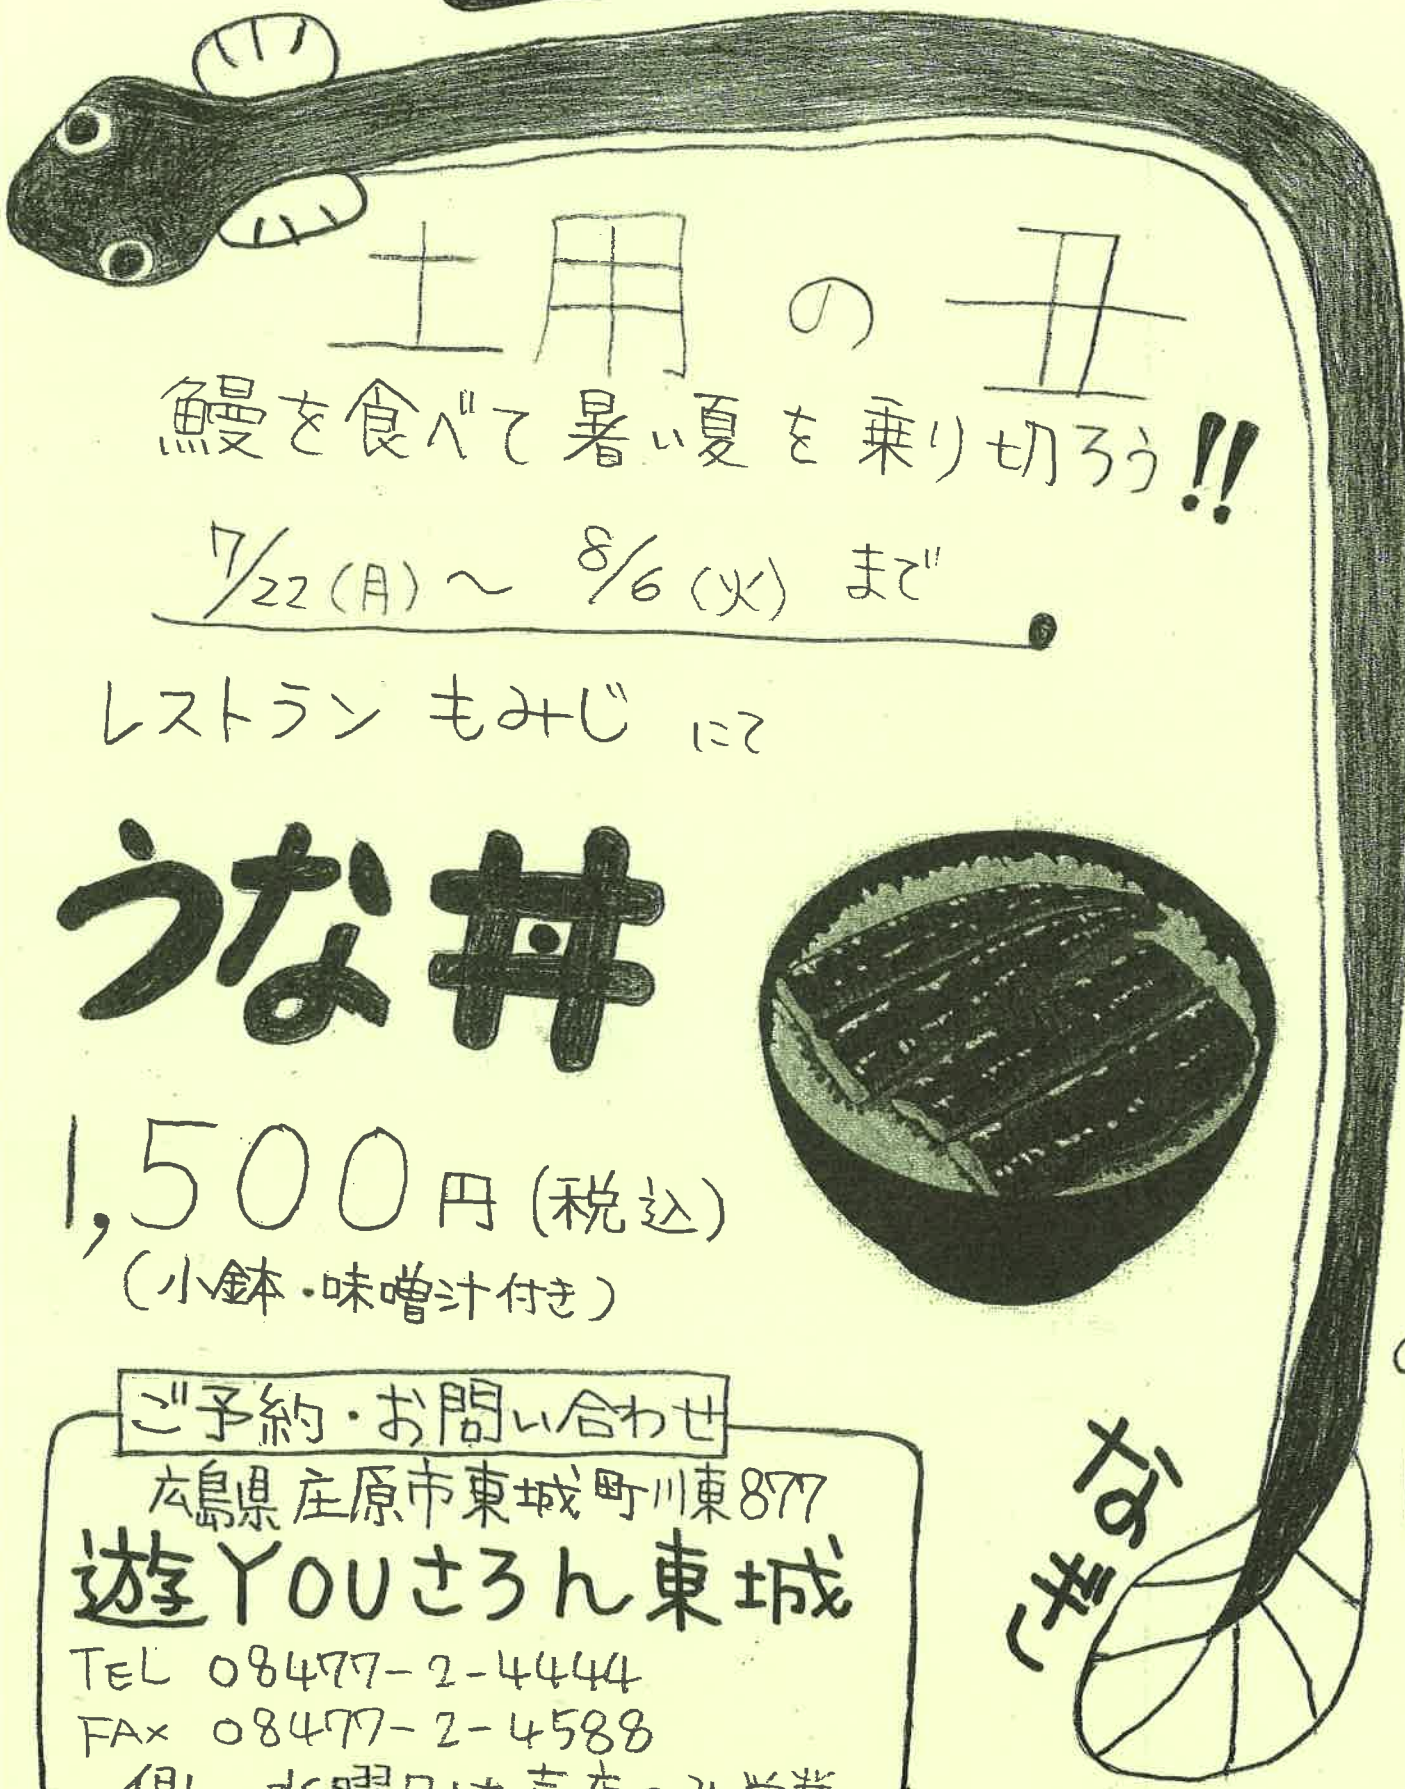 土用の丑
鰻を食べて暑い夏を乗り切ろう!!
7/22(月)~8/6(火)まで
レストラン もみじ にて
うな丼
1,500円(税込)
(小鉢・味噌汁付き)
ご予約・お問い合わせ
広島県庄原市東城町川東877
遊YOUさろん東城
TEL 08477-2-4444
FAX 08477-2-4588
なぎ